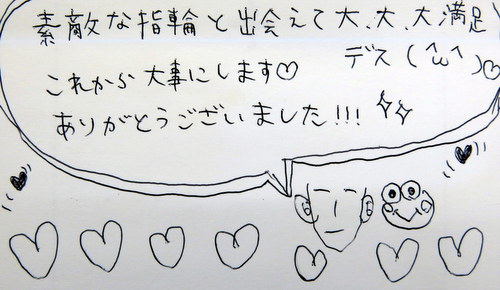 素敵な指輪と出会えて大、大、大満足
デス(^ω^)♡
これから大事にします♡
ありがとうございました!!!